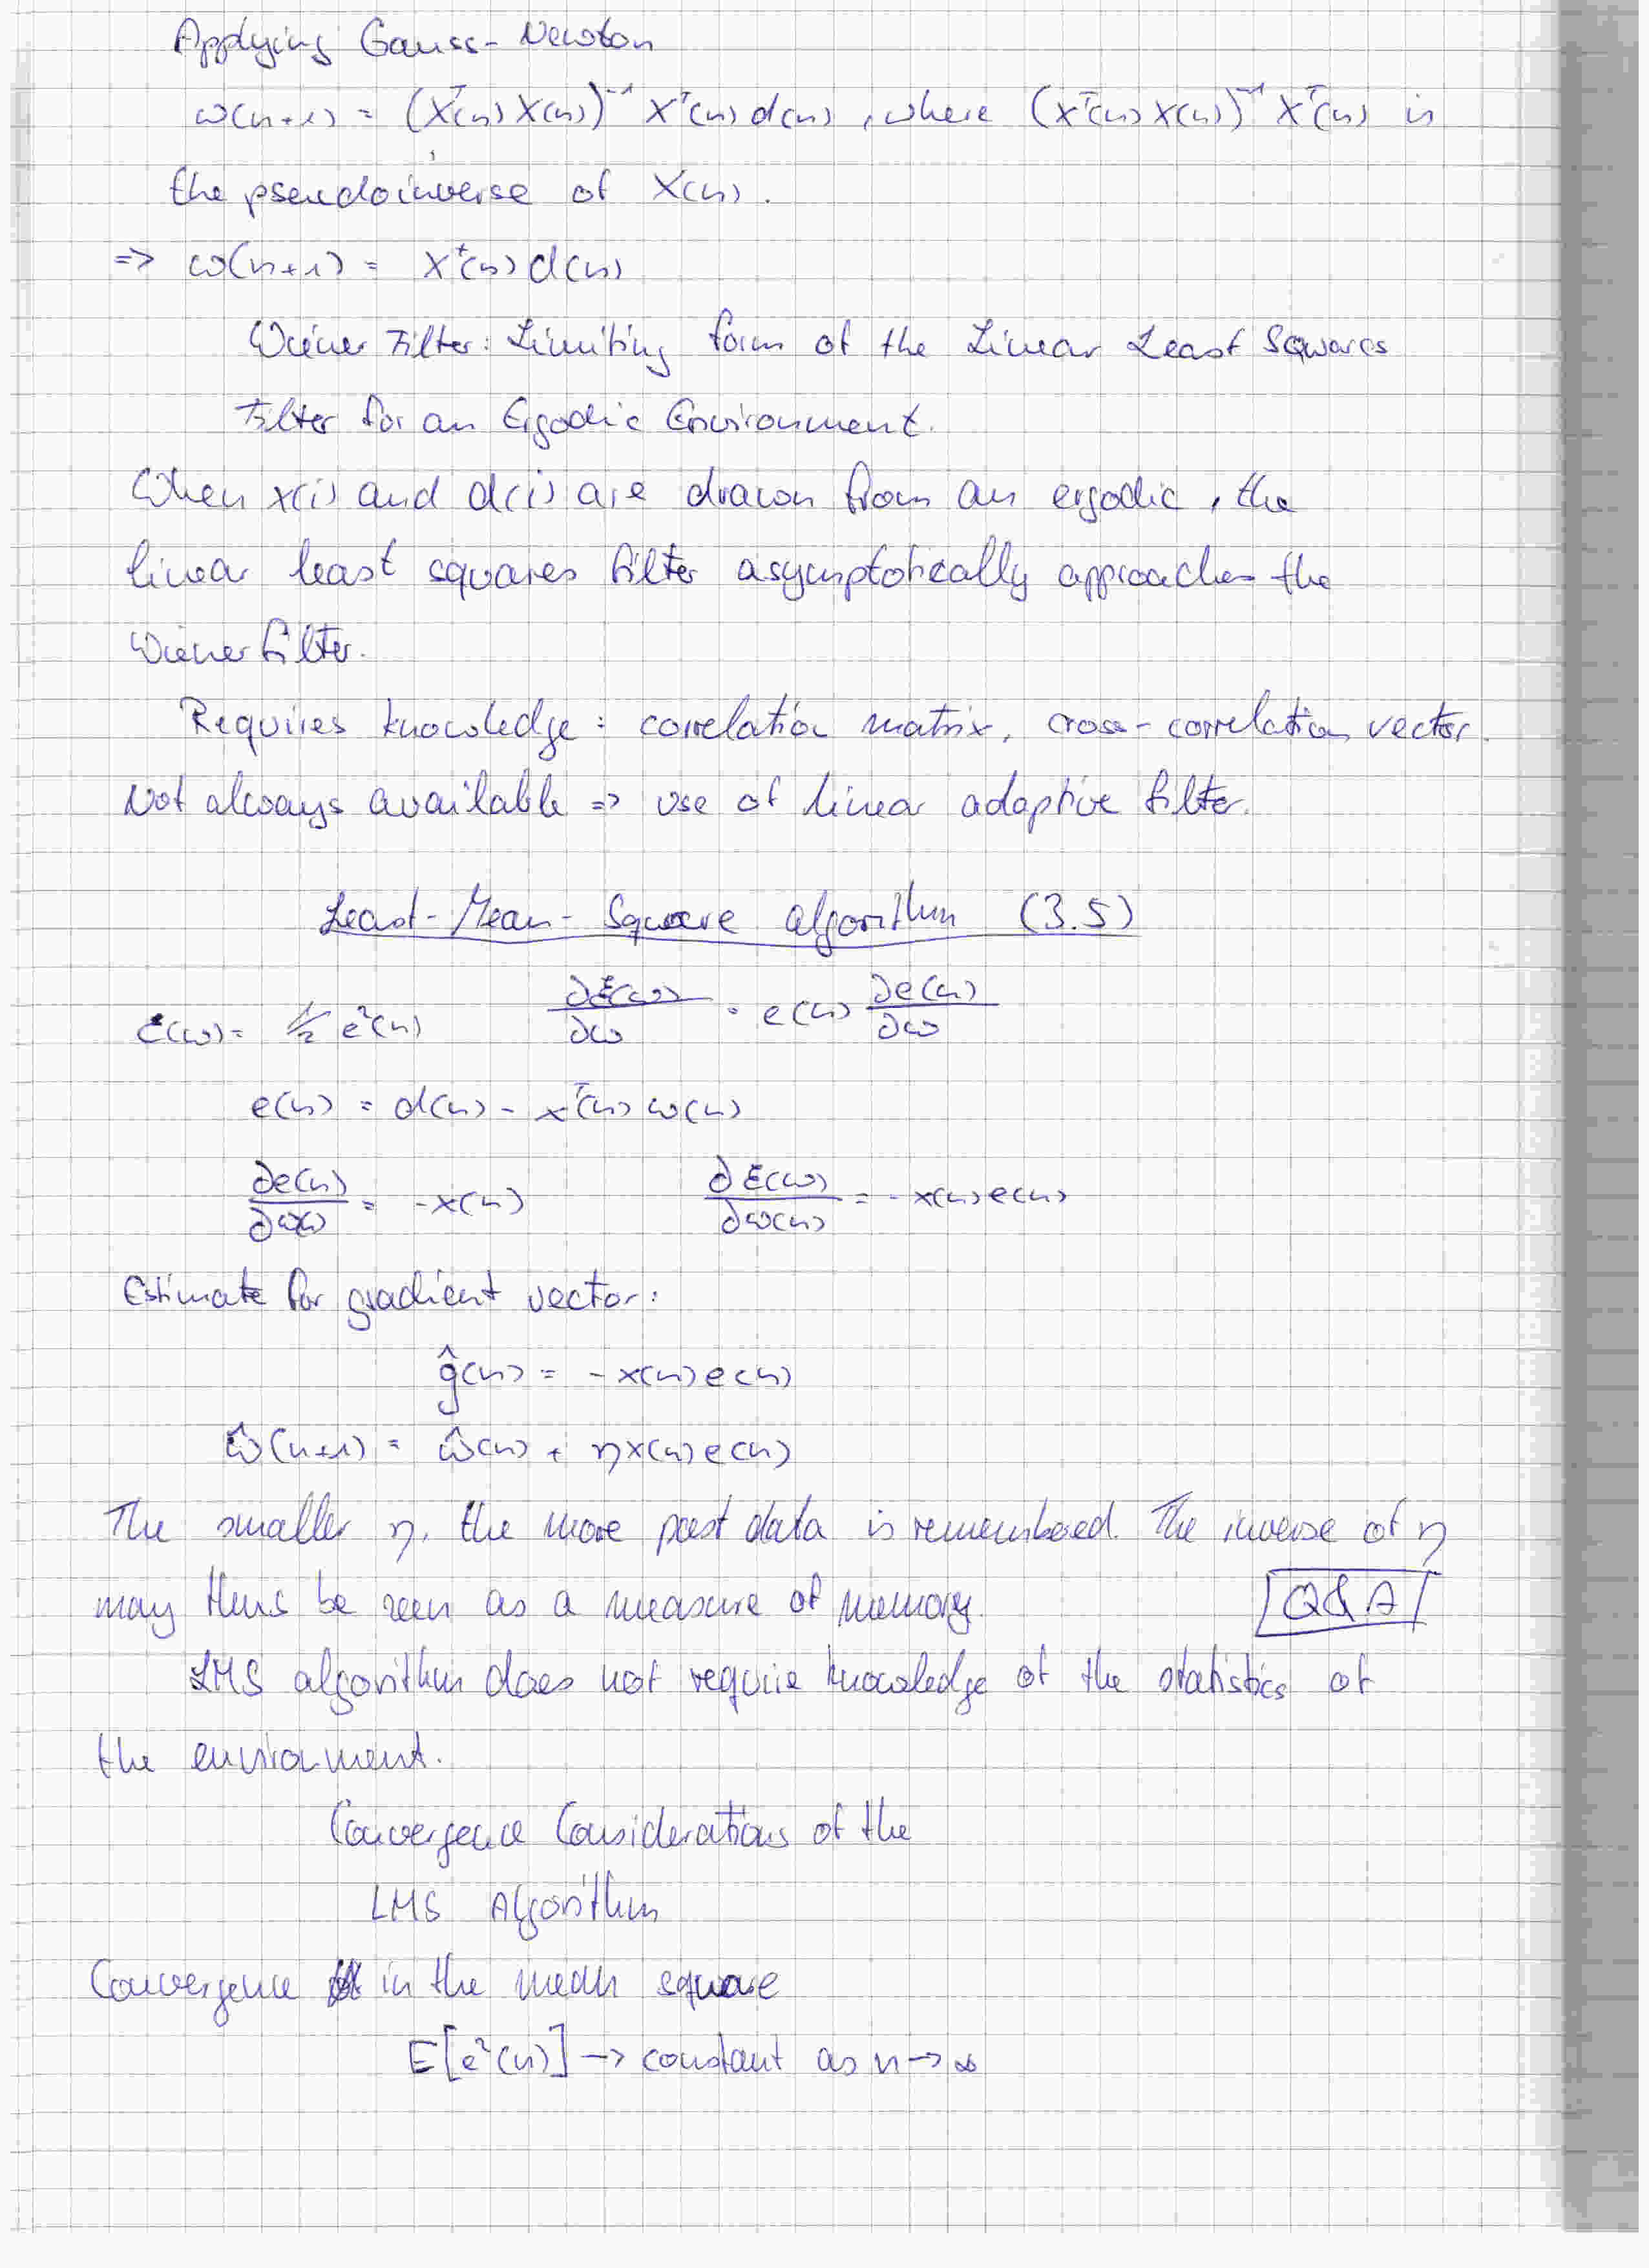 Applying Gauss-Newton
w(n+1) = (Xᵀ(n) X(n))⁻¹ Xᵀ(n) d(n), where (Xᵀ(n) X(n))⁻¹ Xᵀ(n) is
the pseudoinverse of X(n).
=> w(n+1) = X⁺(n) d(n)
Wiener Filter: Limiting form of the Linear Least Squares
Filter for an Ergodic Environment.
When x(i) and d(i) are drawn from an ergodic, the
linear least squares filter asymptotically approaches the
Wiener filter.
Requires knowledge: correlation matrix, cross-correlation vector.
Not always available => use of linear adaptive filter.
Least-Mean-Square algorithm (3.5)
ℰ(w) = 1/2 e²(n) ∂ℰ(w)/∂w = e(n) ∂e(n)/∂w
e(n) = d(n) - xᵀ(n) w(n)
∂e(n)/∂w(n) = -x(n) ∂ℰ(w)/∂w(n) = -x(n) e(n)
Estimate for gradient vector:
ĝ(n) = -x(n) e(n)
ŵ(n+1) = ŵ(n) + ηx(n) e(n)
The smaller η, the more past data is remembered. The inverse of η
may thus be seen as a measure of memory. Q&A
LMS algorithm does not require knowledge of the statistics of
the enviroment.
Convergence Considerations of the
LMS Algorithm
Convergence in the mean square
E[e²(n)] → constant as n → ∞